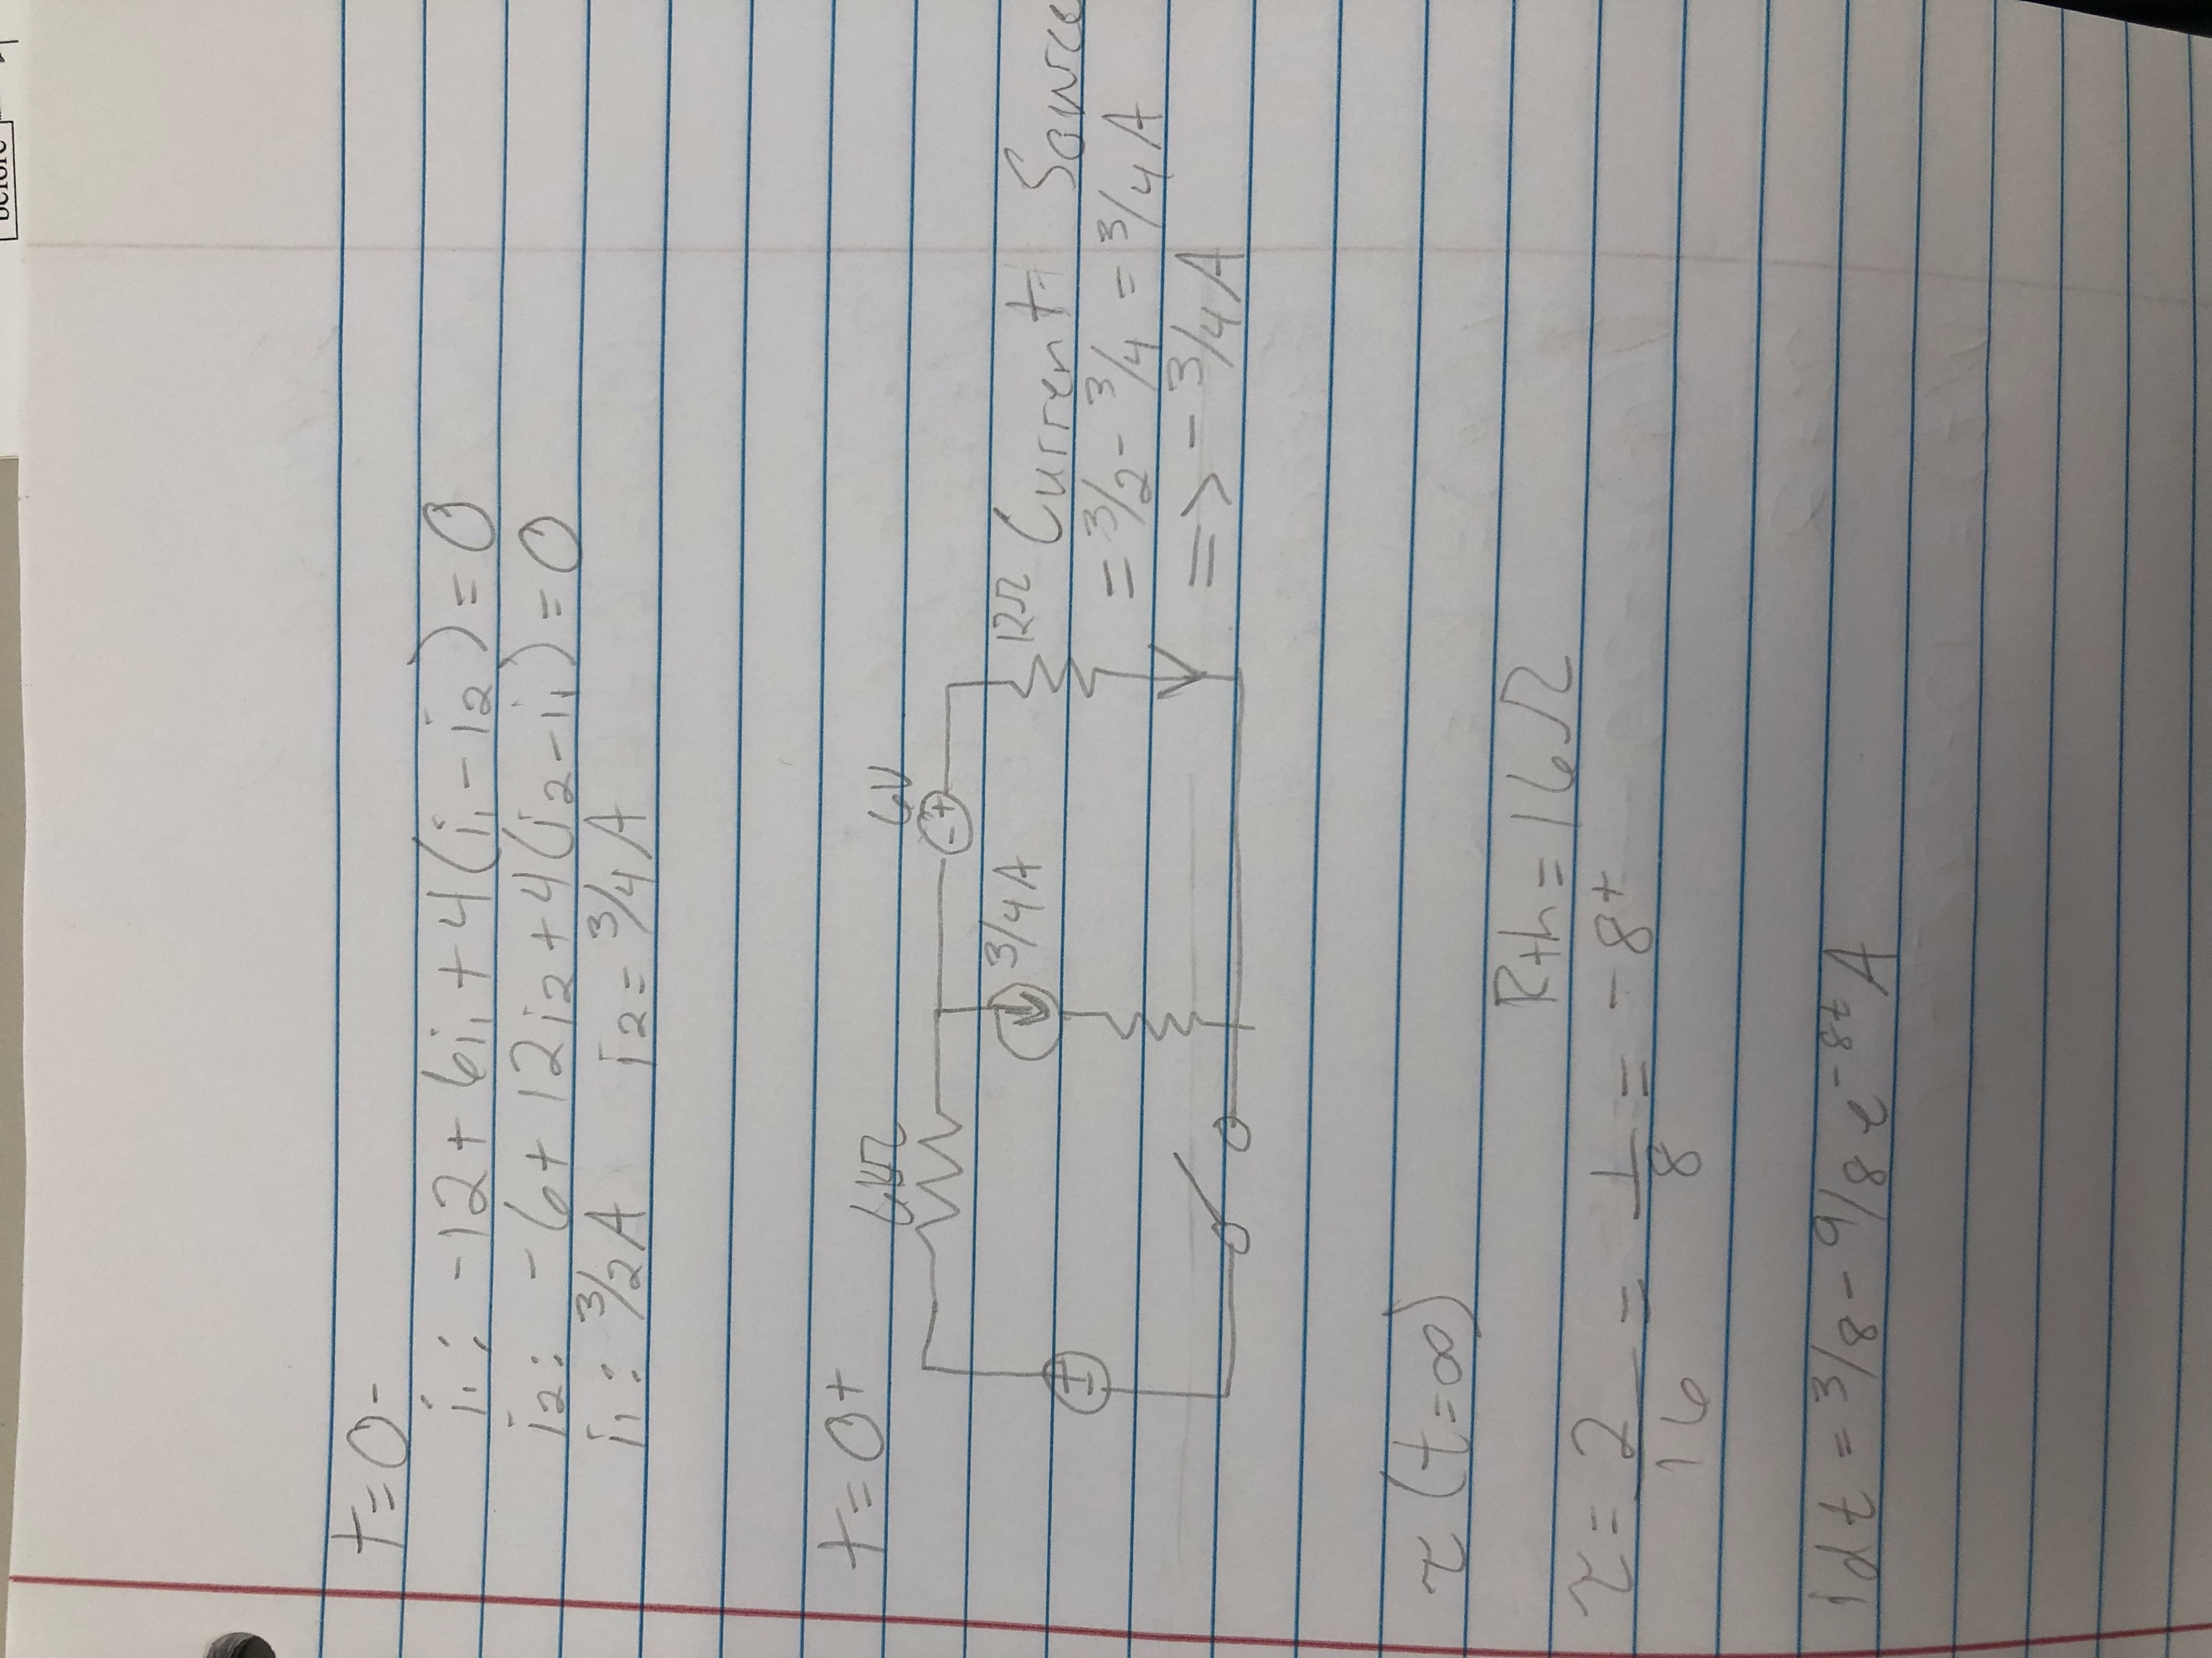 before
t=0-
i₁: -12+6i₁+4(i₁-i₂)=0
i₂: -6+12i₂+4(i₂-i₁)=0
i₁: 3/2A i₂=3/4A
t=0+
6V
3/4A
12Ω
Current Source
=3/2-3/4=3/4A
=> -3/4A
τ(t=∞)
Rth=16Ω
τ=2/16=1/8=-8t
idt=3/8-9/8e^-8t A